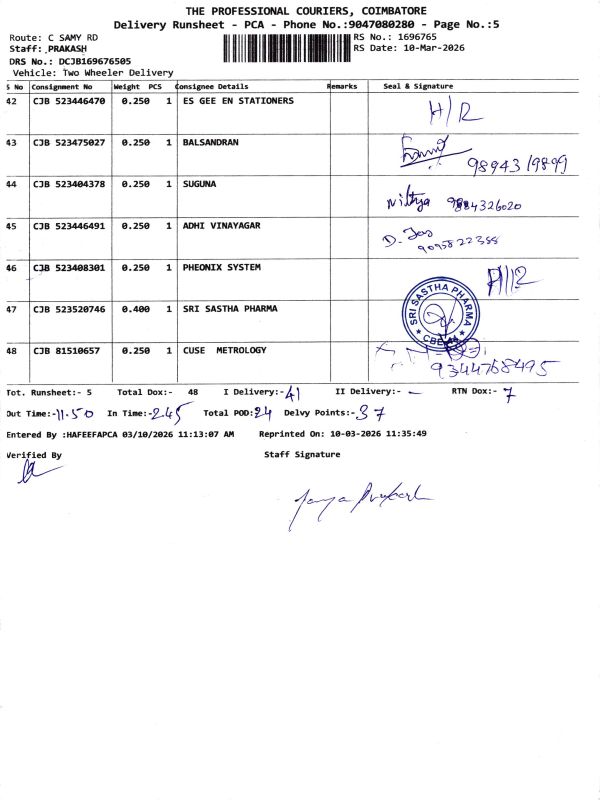 THE PROFESSIONAL COURIERS, COIMBATORE
Delivery Runsheet - PCA - Phone No.:9047080280 - Page No.:5
Route: C SAMY RD
RS No.: 1696765
Staff: PRAKASH
RS Date: 10-Mar-2026
DRS No.: DCJB169676505
Vehicle: Two Wheeler Delivery
S No Consignment No Weight PCS Consignee Details Remarks Seal & Signature
42 CJB 523446470 0.250 1 ES GEE EN STATIONERS
43 CJB 523475027 0.250 1 BALSANDRAN
44 CJB 523404378 0.250 1 SUGUNA Nithya
45 CJB 523446491 0.250 1 ADHI VINAYAGAR
9095822388
46 CJB 523408301 0.250 1 PHEONIX SYSTEM
47 CJB 523520746 0.400 1 SRI SASTHA PHARMA SRI SASTHA PHARMA
48 CJB 81510657 0.250 1 CUSE METROLOGY
9344768495
Tot. Runsheet:- 5 Total Dox:- 48 I Delivery:- 41 II Delivery:- - RTN Dox:- 7
Out Time:-11.50 In Time:-2.45 Total POD:24 Delvy Points:-37
Entered By :HAFEEFAPCA 03/10/2026 11:13:07 AM Reprinted On: 10-03-2026 11:35:49
Verified By Staff Signature